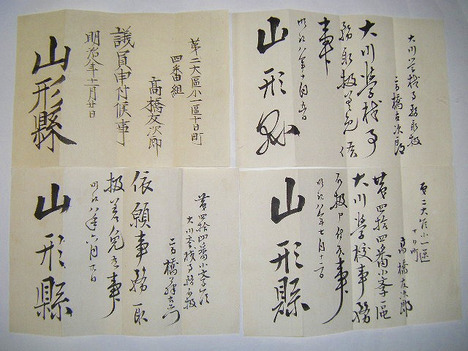 大川学校事務取扱
高橋友次郎
大川学校事
務取扱差免候
事
明治八年十月五日
山形縣
第二大區小一區十日町
四番組
高橋友次郎
議員申付候事
明治八年十一月廿日
山形縣
第二大區小一區
十日町
高橋友次郎
第四拾四番小学區
大川学校事務
取扱申付候事
明治八年七月十二日
山形縣
第四拾四番小学區
大川学校事務取扱
高橋
依願事務取
扱差免候事
明治八年六月
山形縣